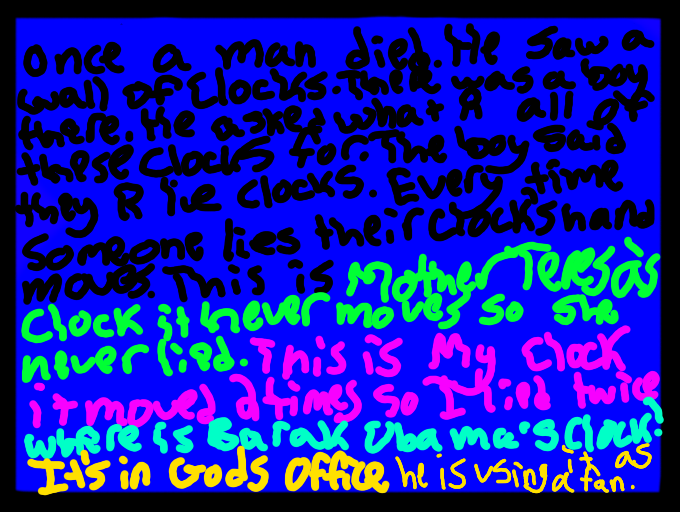 Once a man died. He saw a
wall of clocks. There was a boy
there. He asked what R all of
these clocks for. The boy said
they R lie clocks. Every time
someone lies their clocks hand
moves. This is Mother Teresa's
clock it never moves so she
never lied. This is My clock
it moved 2 times so I lied twice
where is Barak Obama's clock?
It's in Gods Office he is using it as
a fan.